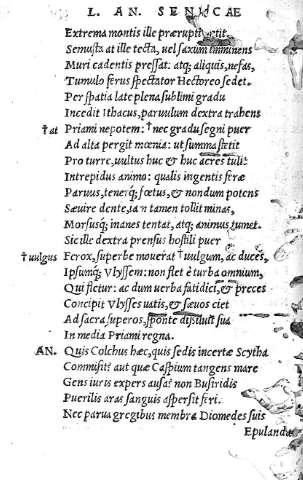 L. AN. SENECAE
Extrema montis ille prærupti petit.
Semusta at ille tecta, uel saxum imminens
Muri cadentis pressat: atq; aliquis, nefas,
Tumulo ferus spectator Hectoreo sedet.
Per spatia late plena sublimi gradu
Incedit Ithacus, paruulum dextra trahens
†at Priami nepotem: †nec gradu segni puer
Ad alta pergit mœnia: ut summa stetit
Pro turre, uultus huc & huc acres tulit
Intrepidus animo: qualis ingentis feræ
Paruus, tenerq; fœtus, & nondum potens
Sæuire dente, iam tamen tollit minas,
Morsusq; inanes tentat, atq; animis tumet.
Sic ille dextra prensus hostili puer
†uulgus Ferox, superbe mouerat †uulgum, ac duces,
Ipsumq; Vlyssem: non flet è turba omnium,
Qui fletur: ac dum uerba fatidici, & preces
Concipit Vlysses uatis, & sæuos ciet
Ad sacra superos, sponte desiluit sua
In media Priami regna.
AN. Quis Colchus hæc, quis sedis incertæ Scytha
Commisit? aut quæ Caspium tangens mare
Gens iuris expers ausa? non Busiridis
Puerilis aras sanguis aspersit feri.
Nec parua gregibus membra Diomedes suis
Epulanda